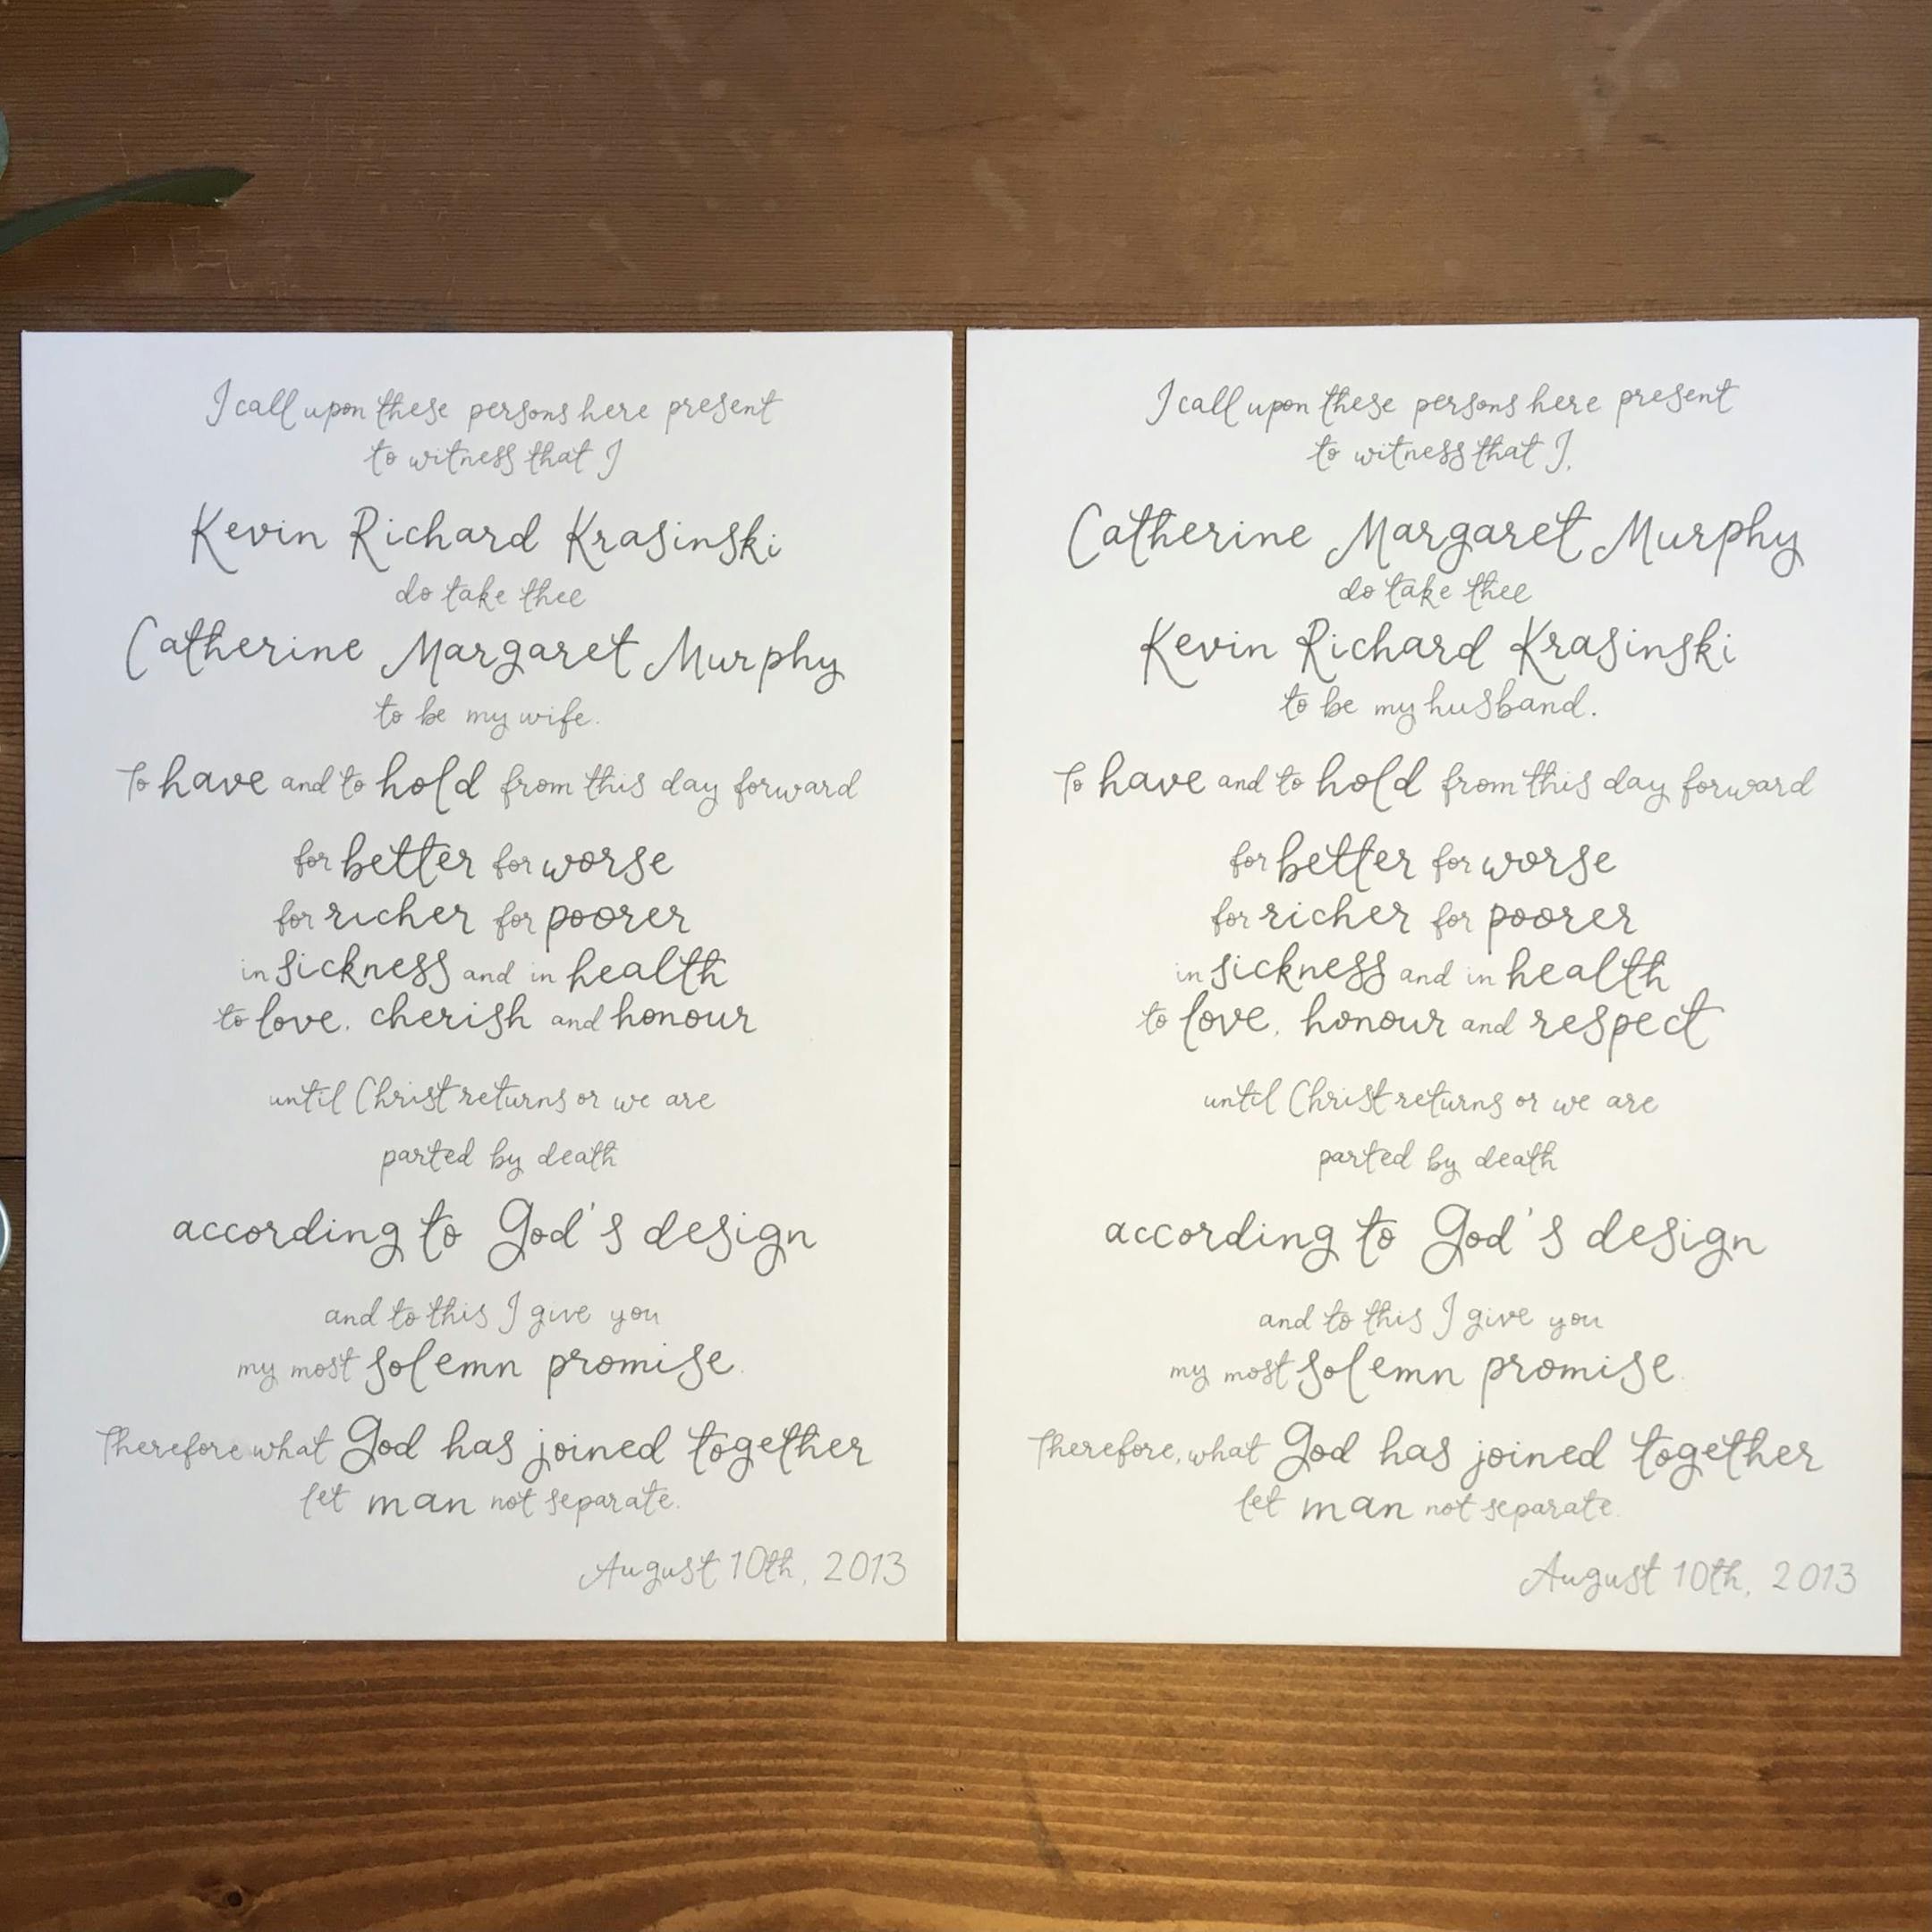 I call upon these persons here present
to witness that I
Kevin Richard Krasinski
do take thee
Catherine Margaret Murphy
to be my wife.
To have and to hold from this day forward
for better for worse
for richer for poorer
in sickness and in health
to love, cherish and honour
until Christ returns or we are
parted by death
according to God's design
and to this I give you
my most solemn promise.
Therefore what God has joined together
let man not separate.
August 10th, 2013
I call upon these persons here present
to witness that I,
Catherine Margaret Murphy
do take thee
Kevin Richard Krasinski
to be my husband.
To have and to hold from this day forward
for better for worse
for richer for poorer
in sickness and in health
to love, honour and respect
until Christ returns or we are
parted by death
according to God's design
and to this I give you
my most solemn promise.
Therefore, what God has joined together
let man not separate.
August 10th, 2013